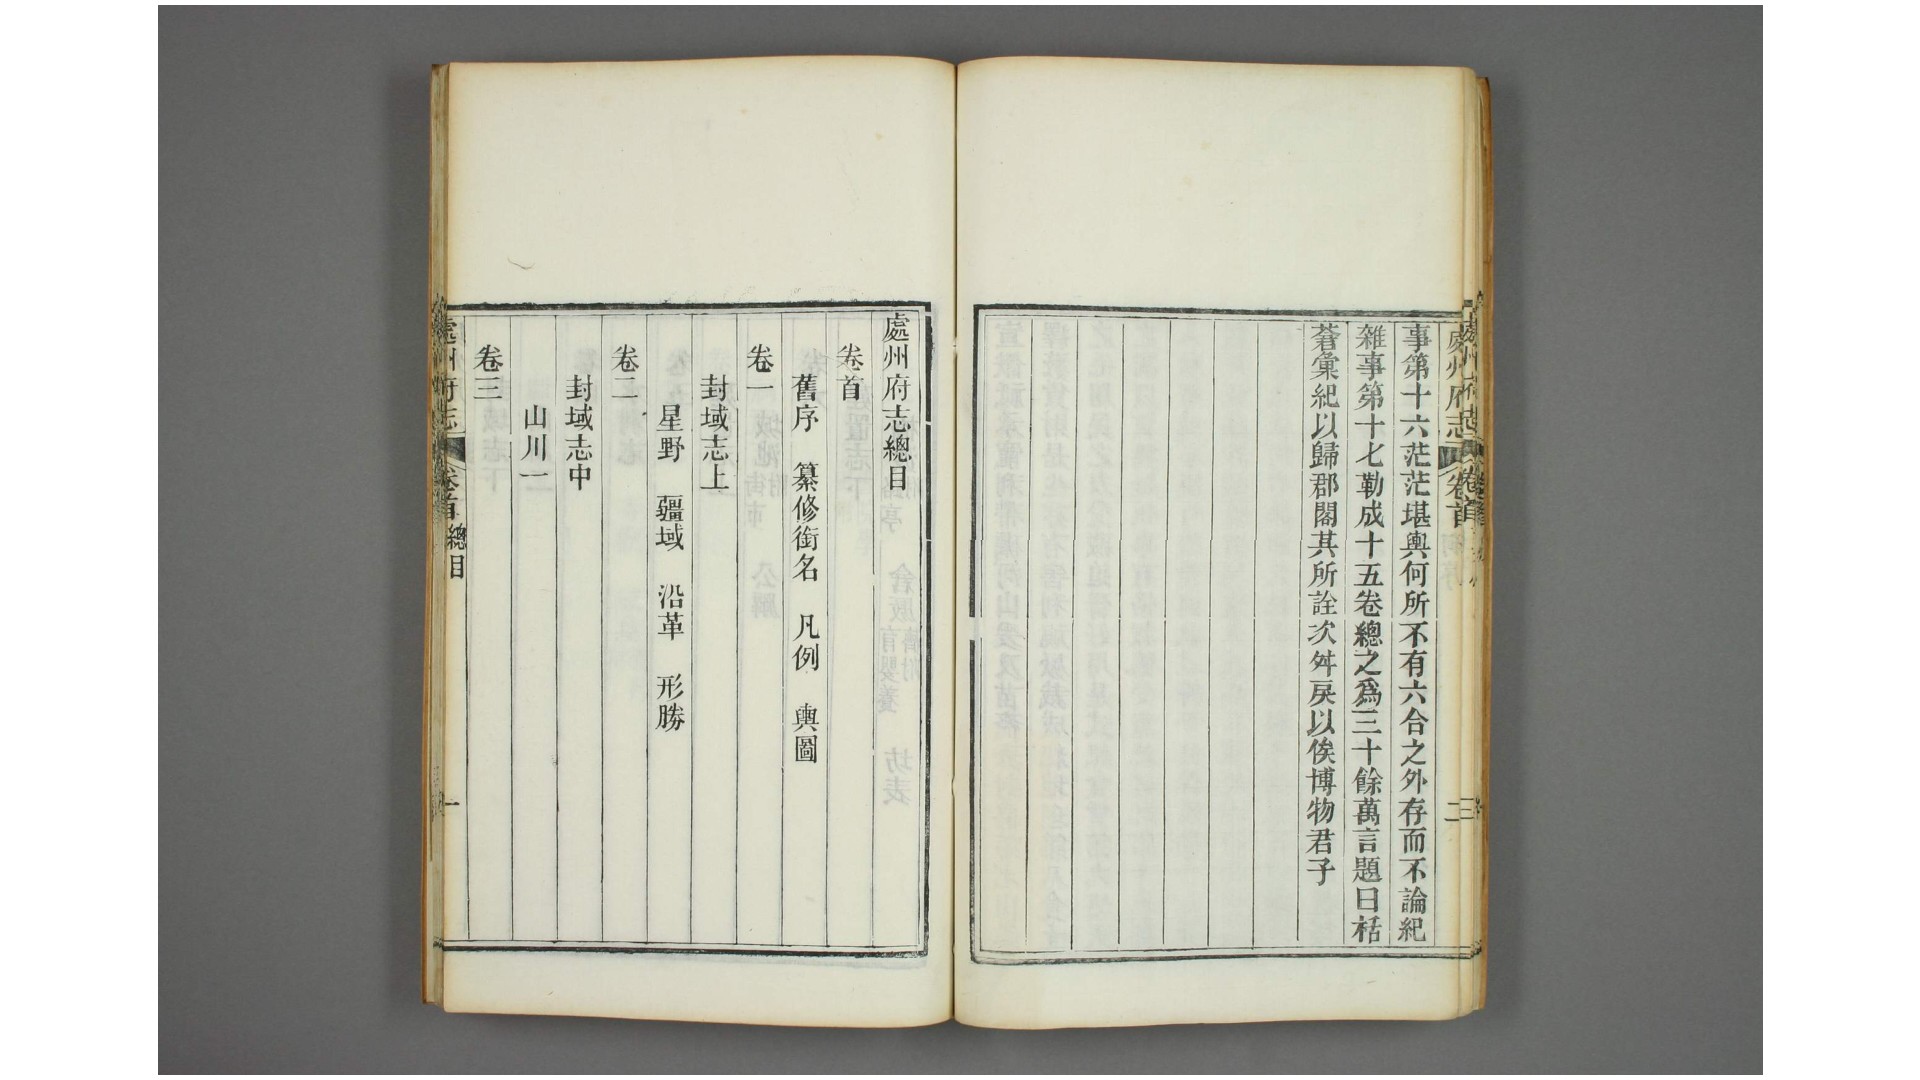 處州府志 卷首
事第十六茫茫堪輿何所不有六合之外存而不論紀
雜事第十七勒成十五卷總之爲三十餘萬言題曰栝
蒼彙紀以歸郡閣其所詮次舛戾以俟博物君子
處州府志總目
卷首
舊序 纂修銜名 凡例 輿圖
卷一
封域志上
星野 疆域 沿革 形勝
卷二
封域志中
山川一
卷三
處州府志 卷首 總目 一